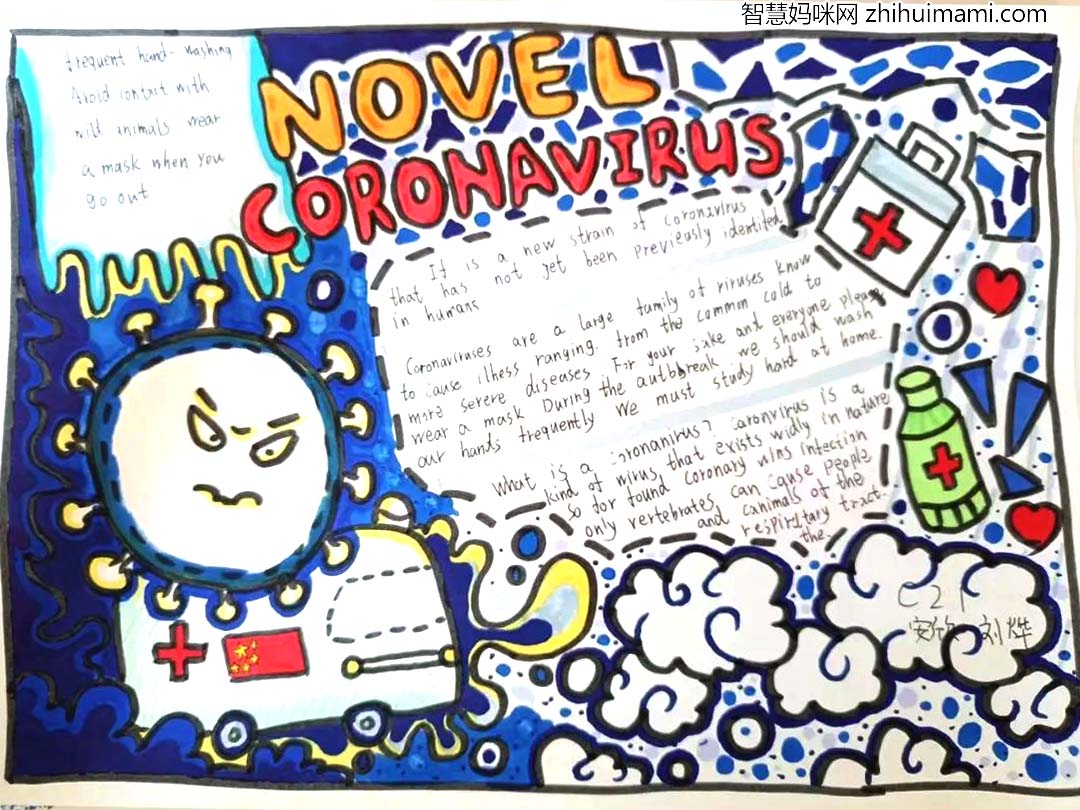 智慧妈咪网 zhihuimami.com
frequent hand-washing
Avoid contact with
wild animals wear
a mask when you
go out
NOVEL
CORONAVIRUS
It is a new strain of coronavirus
that has not yet been previously identited
in humans
Coronaviruses are a large family of riruses know
to cause illness ranying. from the commm cold to
more serere diseases For your sake and everyone please
wear a mask During the autbbreak we should wash
our hands frequently We must study hard at home.
What is a coronanirus? Caronvirus is a
kind of wirus that exists widly in nature
so for found coronary wins infection
only vertebrates can cause people
and canimals of the
respiritary tract.
the
C21
安欣 刘烨